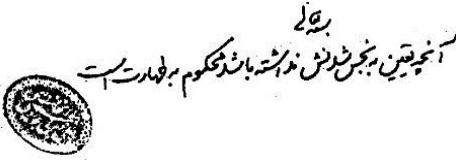 بسمه تعالی
آنچه یقین به نجس شدنش نداشته باشد محکوم به طهارت است